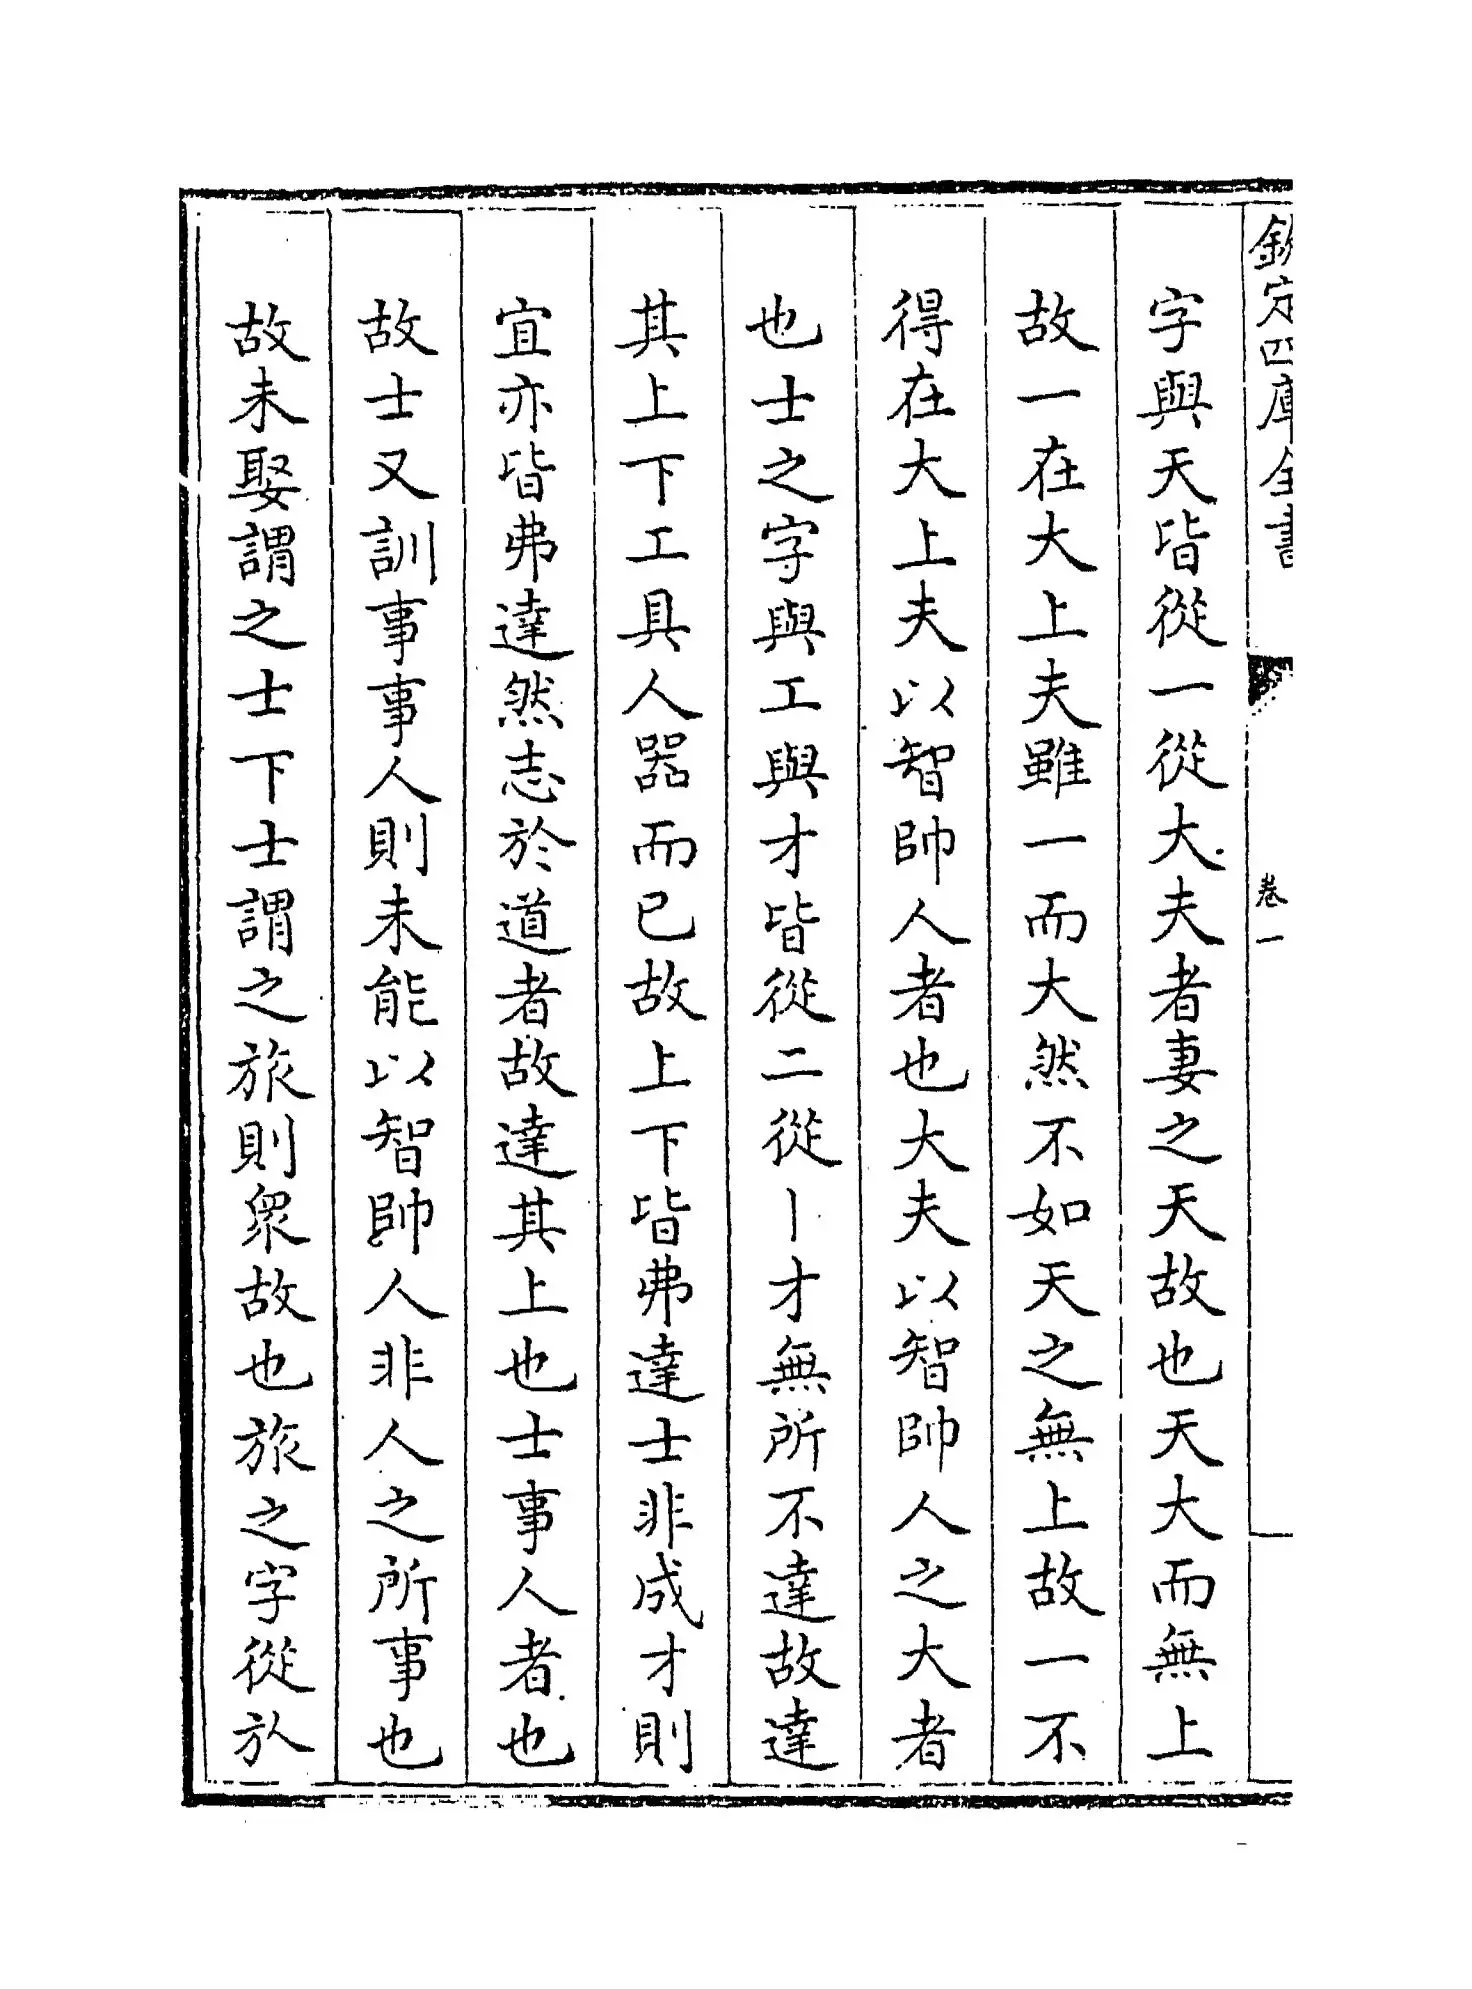 欽定四庫全書
卷一
字與天皆從一從大夫者妻之天故也天大而無上
故一在大上夫雖一而大然不如天之無上故一不
得在大上夫以智帥人者也大夫以智帥人之大者
也士之字與工與才皆從二從丨才無所不達故達
其上下工具人器而已故上下皆弗達士非成才則
宜亦皆弗達然志於道者故達其上也士事人者也
故士又訓事事人則未能以智帥人非人之所事也
故未娶謂之士下士謂之旅則衆故也旅之字從㫃